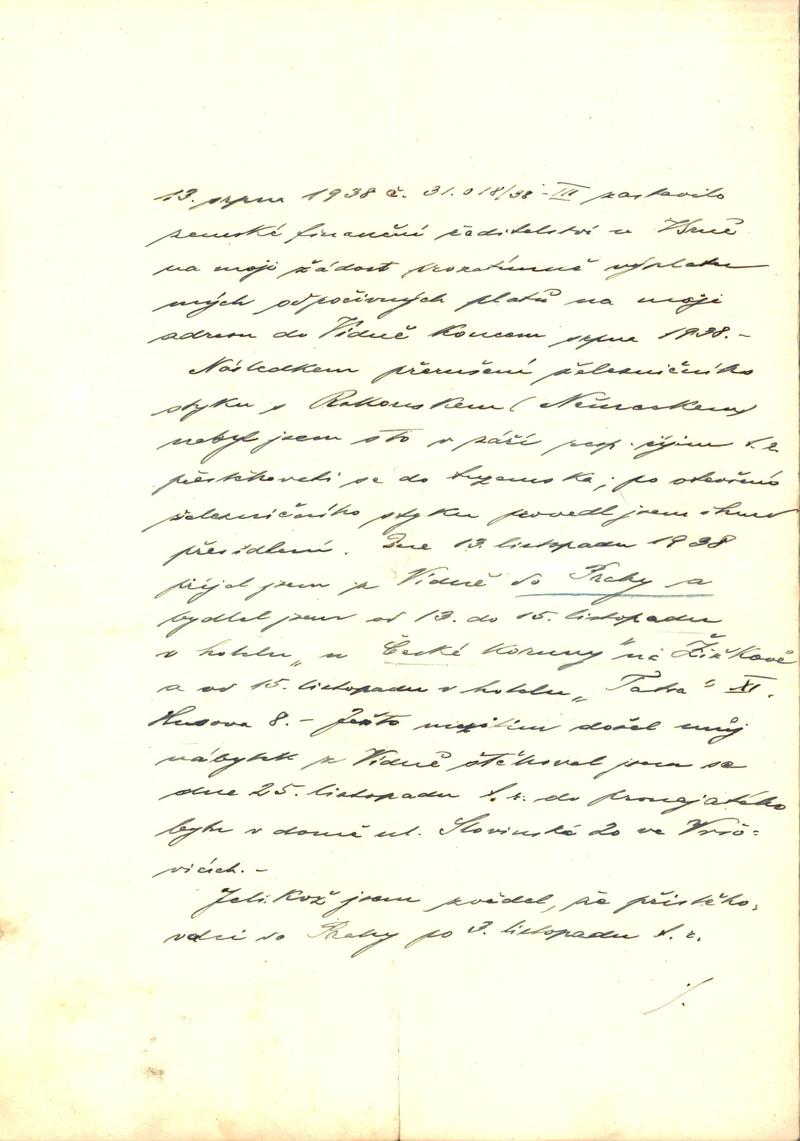 13. srpna 1938 č. 31.018/38-III zastavilo
zemské finanční ředitelství v Brně
na moji žádost prozatímně výplatu
mých odpočivných platů na moji
adresu do Vídně koncem srpna 1938.-
Následkem přerušení železničního
styku s Rakouskem (Německem)
nebyl jsem sto v září resp. říjnu t.r.
přestěhovati se do tuzemska; po otevření
železničního styku provedl jsem ihned
přesídlení. Dne 13. listopadu 1938
přijel jsem z Vídně do Prahy a
bydlel jsem od 13. do 15. listopadu
v hotelu „u České Koruny" na Žižkově
a od 15. listopadu v hotelu „Tatra" XI.
Husova 8. - Ježto mezitím došel můj
nábytek z Vídně stěhoval jsem se
dne 25. listopadu t.r. do pronajatého
bytu v domě ul. Slovinská 20 ve Vršo-
vicích.-
Jelikož jsem zvěděl, že přistěho-
valci do Prahy po 3. listopadu t.r.
./.